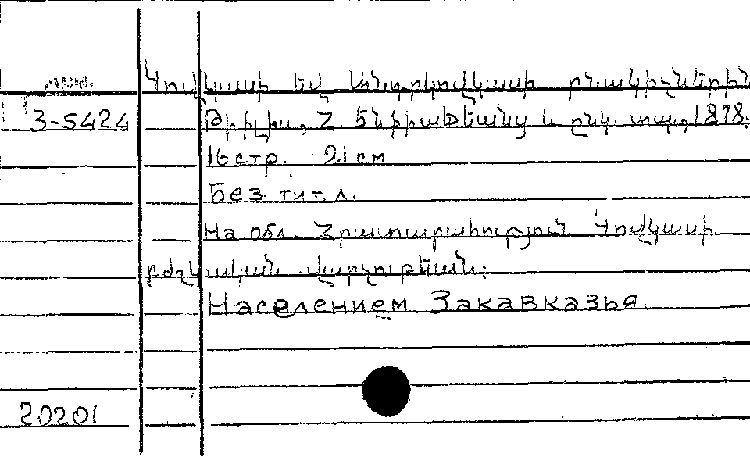 Կովկասի եւ Անդրկովկասի բնակիչներին
3-5424
Թիֆլիս, Հ. Ենֆիաճեանց և ընկ. տպ., 1878.
16 стр. 21 см
Без тит. л.
На обл. Հրատարակություն Կովկասի
բժշկական վարչութեան:
Населением Закавказья.
20201